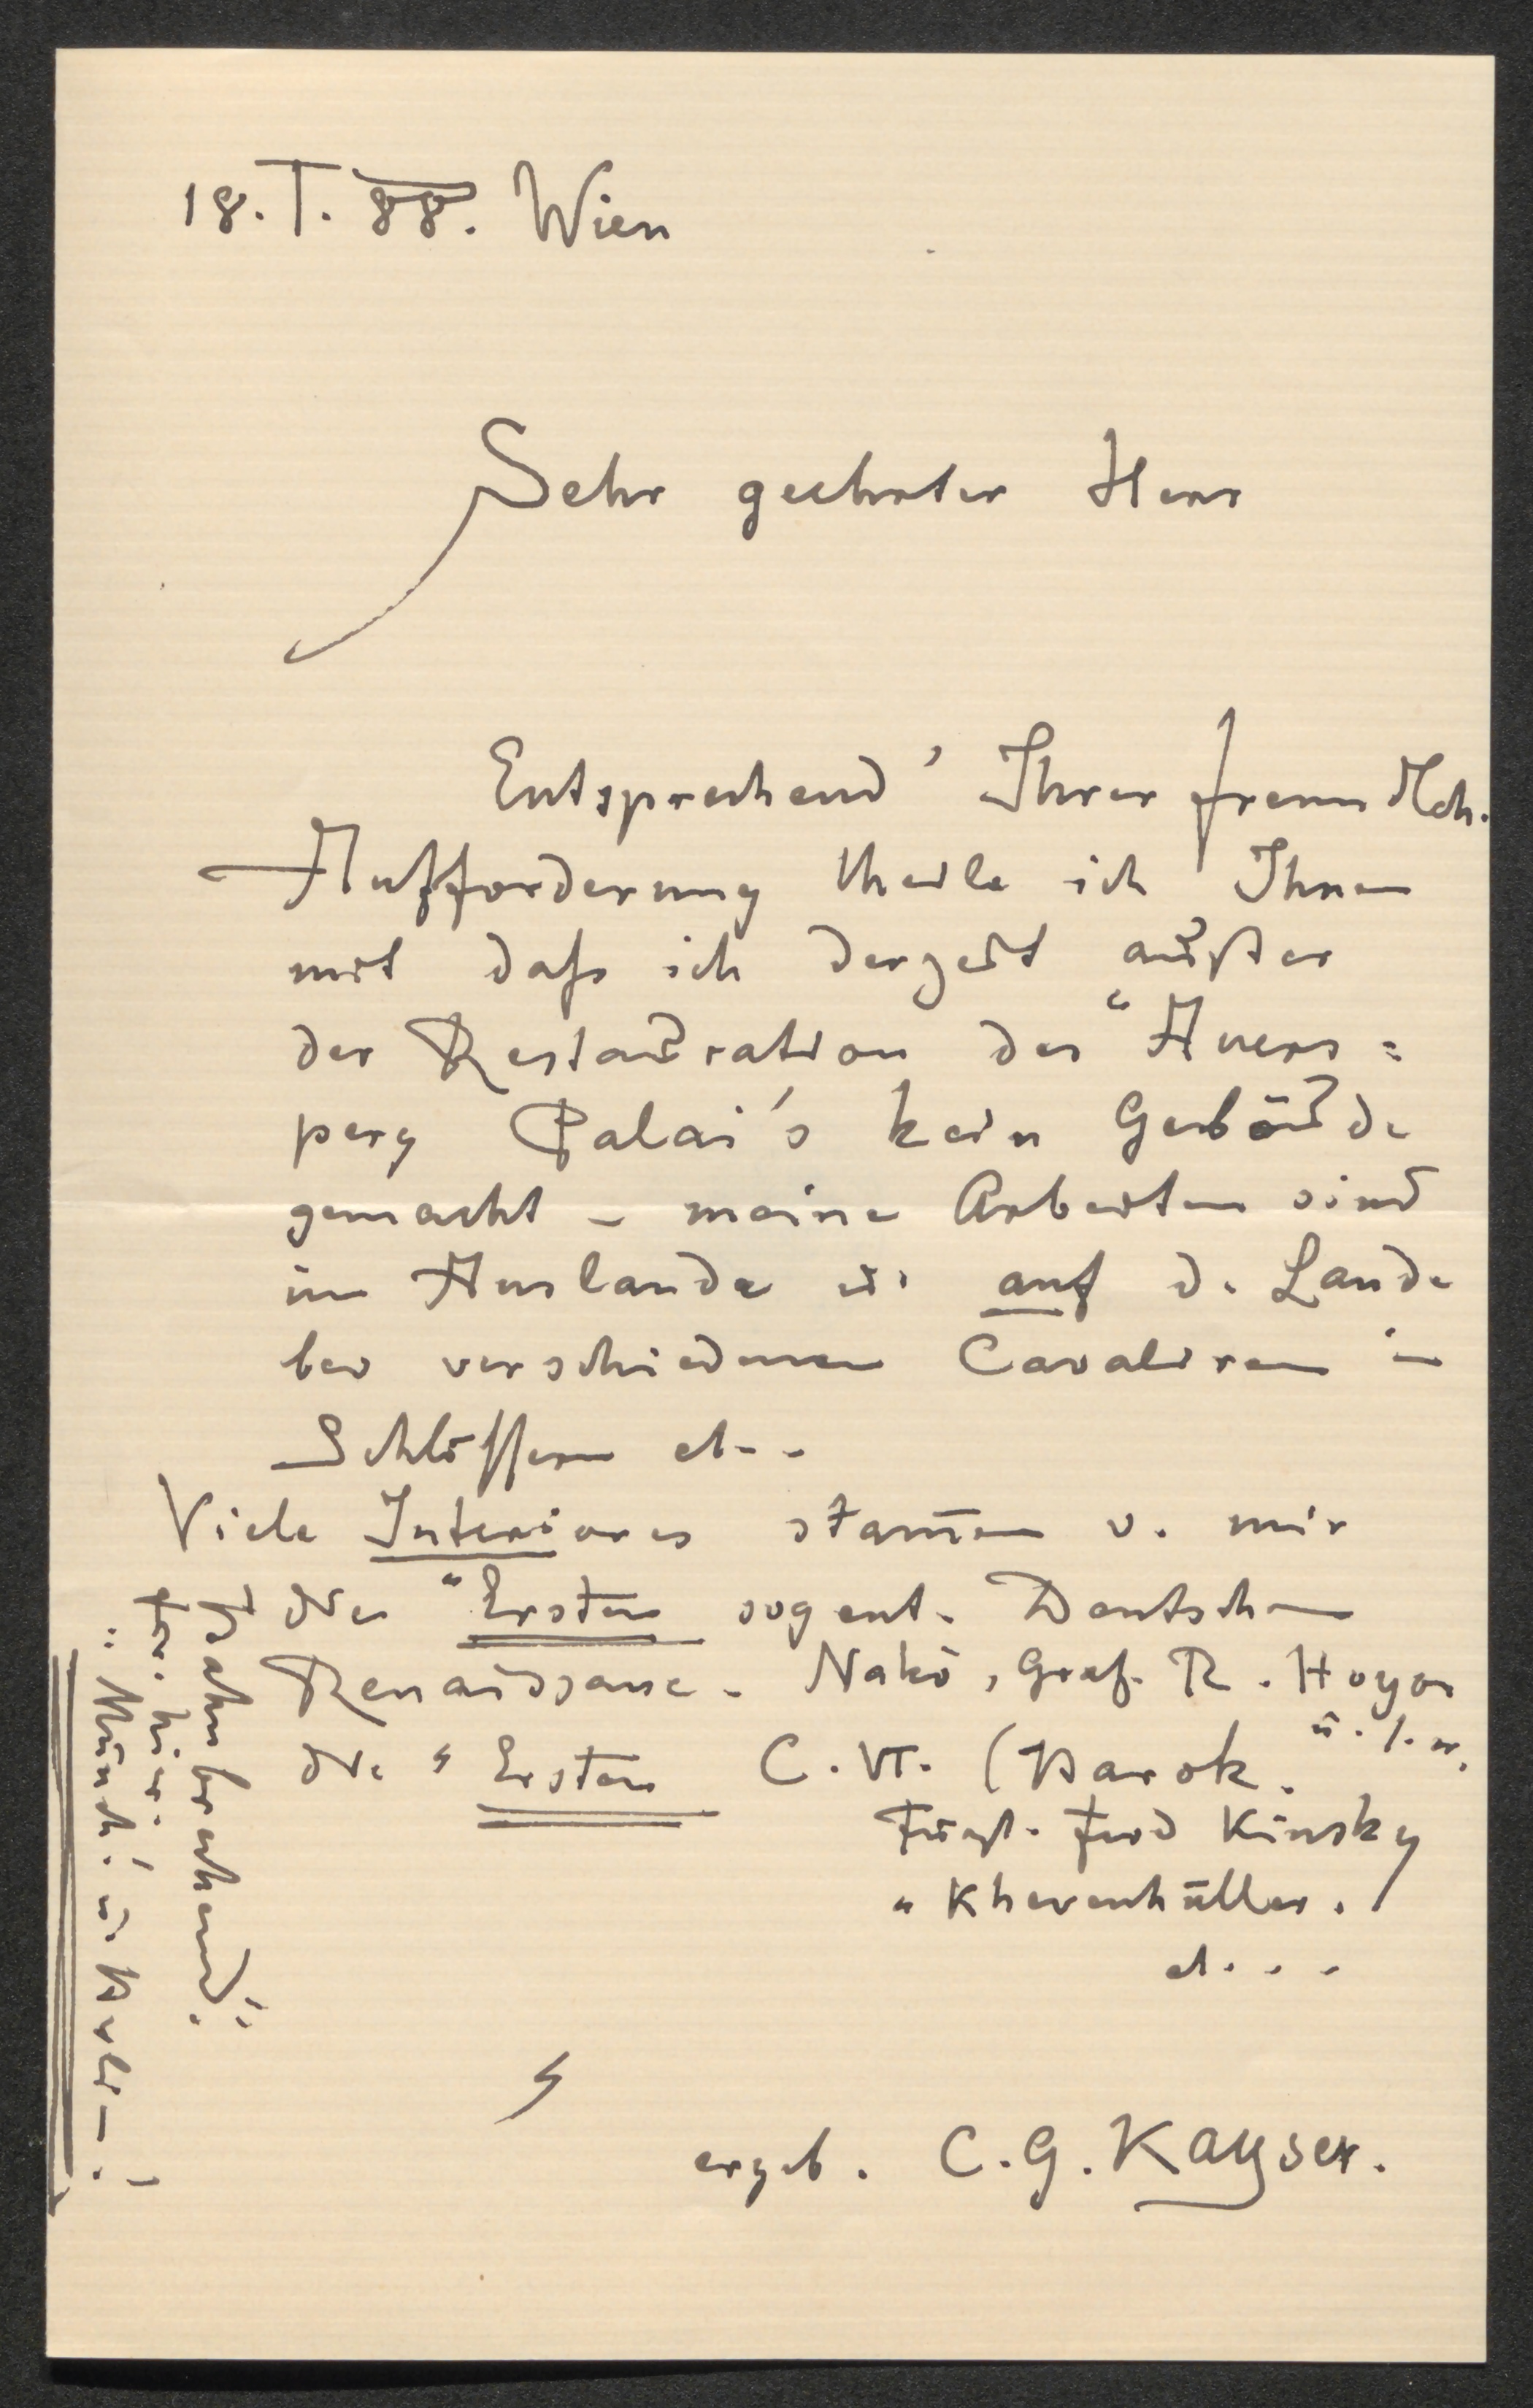 18. I. 88. Wien
Sehr geehrter Herr
Entsprechend Ihrer freundlich.
Aufforderung theile ich Ihnen
mit daſs ich derzeit außer
der Restauration des "Auers=
perg Palai's kein Gebäude
gemacht – meine Arbeiten sind
im Auslande u. auf d. Lande
bei verschiedenen Cavaliren in
Schlössern et..
Viele Interiores stam̄en v. mir
die "Ersten sogent. Deutschen
Renaissance. Nako, Graf. R. Hoyos
u. s. w.
die "Ersten C. VI. (Barok.
Fürst. Ferd Kinsky
" Khevenhüller.
et...
ergeb. C. G. Kayser.
Bahnbrechend!"
für hier.